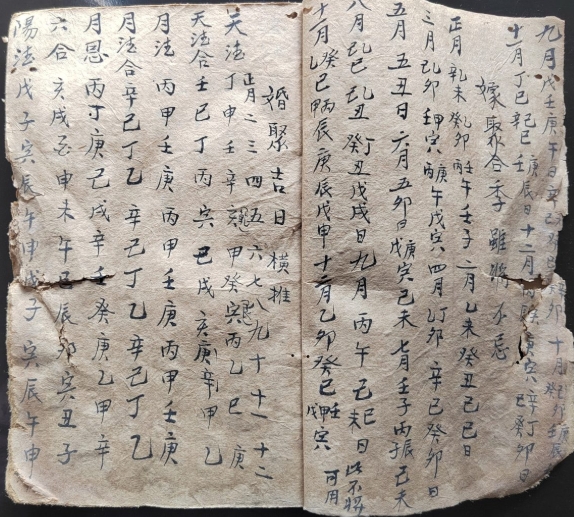 九月戊壬庚午日辛己亥巳癸卯十月癸卯壬
十一月丁巳辛巳壬庚辰日十二月丙庚寅辛丁卯日
嫁聚合季雖將不忌
正月辛未癸卯丙壬午壬子二月乙未癸丑己巳日
三月己卯壬甲寅丙庚午戊寅四月丁卯辛己癸卯日
五月五丑日六月五卯日戊庚寅己未七月壬子丙辰己未
八月己巳乙丑癸丁丑戊戌日九月丙午己巳未日此不將
十一月癸乙巳甲丙辰庚辰戊申十二月乙卯癸己壬戊寅可用
婚聚吉日橫推
正月二三四五六七八九十十一十二
天法丁申壬辛亥甲癸寅丙乙巳庚
天法合壬巳丁丙寅己戌亥庚辛甲乙
月法丙甲壬庚丙甲壬庚丙甲壬庚
月法合辛己丁乙辛己丁乙辛己丁乙
月恩丙丁庚己戊辛壬癸庚乙甲辛
六合亥戌酉申未午巳辰卯寅丑子
陽法戊子寅辰午申戌子寅辰午申